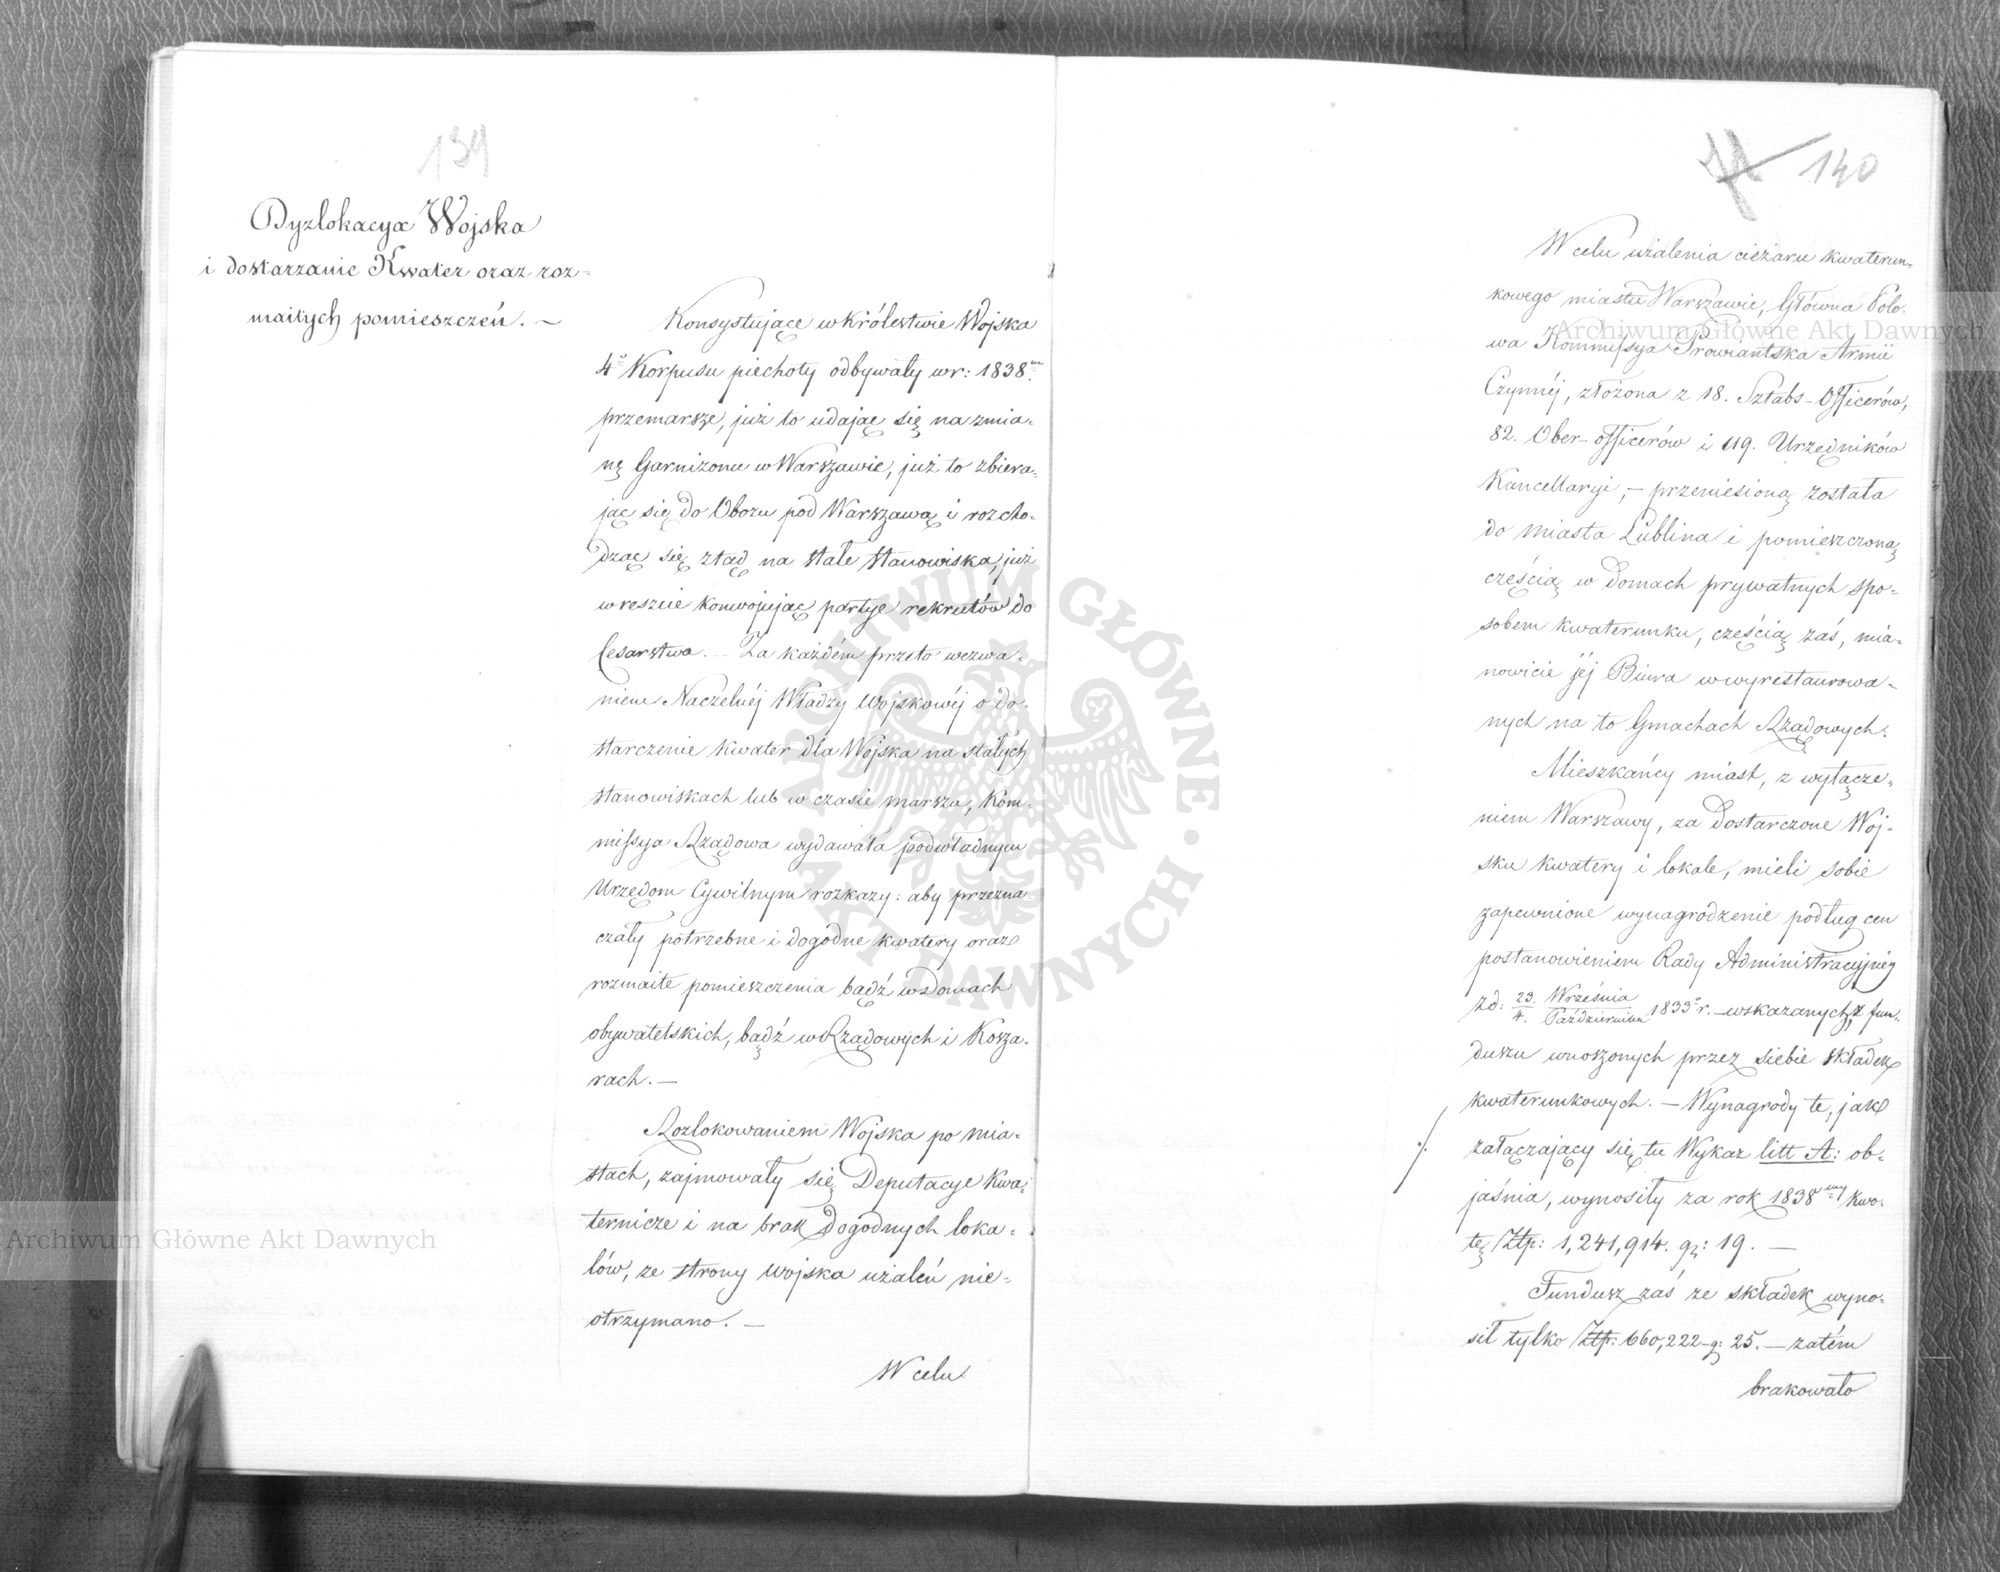 139
Dyzlokacya Wojska
i dostarzanie Kwater oraz roz=
maitych pomieszczeń. —
Konsystujące w Królestwie Wojska
4º Korpusu piechoty odbywały w r: 1838m
przemarsze, już to udając się na zmia-
nę Garnizonu w Warszawie, już to zbiera-
jąc się do Obozu pod Warszawą i rozcho-
dząc się ztąd na stałe stanowiska, już
wreszcie konwojując partye rekrutów do
Cesarstwa. — Za każdém przeto wezwa-
niem Naczelnéj Władzy Wojskowéj o do-
starczenie kwater dla Wojska na stałych
stanowiskach lub w czasie marszu, Kom-
missya Rządowa wydawała podwładnym
Urzędom Cywilnym rozkazy: aby przezna-
czały potrzebne i dogodne kwatery oraz
rozmaite pomieszczenia bądź w domach
obywatelskich, bądź w Rządowych i Kosza-
rach. —
Rozlokowaniem Wojska po mia-
stach, zajmowały się Deputacye Kwa-
ternicze i na brak dogodnych loka-
lów, ze strony wojska użaleń nie-
otrzymano. —
W celu
140
W celu użalenia ciężaru kwaterun-
kowego miastu Warszawie, Główna Polo-
wa Kommissya Prowiantska Armii
Czynnéj, złożona z 18. Sztabs-Officerów,
82. Ober-officerów i 119. Urzędników
Kancellaryi, — przeniesioną została
do miasta Lublina i pomieszczoną
częścią w domach prywatnych spo-
sobem kwaterunku, częścią zaś, mia-
nowicie jéj Biura w wyrestaurowa-
nych na to Gmachach Rządowych.
Mieszkańcy miast, z wyłącze-
niem Warszawy, za dostarczone Woj-
sku kwatery i lokale, mieli sobie
zapewnione wynagrodzenie podług cen
postanowieniem Rady Administracyjnéj
z d: 23. Września / 4. Października 1833 r. — wskazanych, z fun-
duszu wnoszonych przez siebie składek
kwaterunkowych. — Wynagrody te, jak
./. załączający się tu Wykaz litt A: ob-
jaśnia, wynosiły za rok 1838my kwo-
tę Złp: 1,241,914. gr: 19. —
Fundusz zaś ze składek wyno-
sił tylko Złp: 660,222 g: 25. — zatém
brakowało
Archiwum Główne Akt Dawnych
Archiwum Główne Akt Dawnych
ARCHIWUM GŁÓWNE AKT DAWNYCH